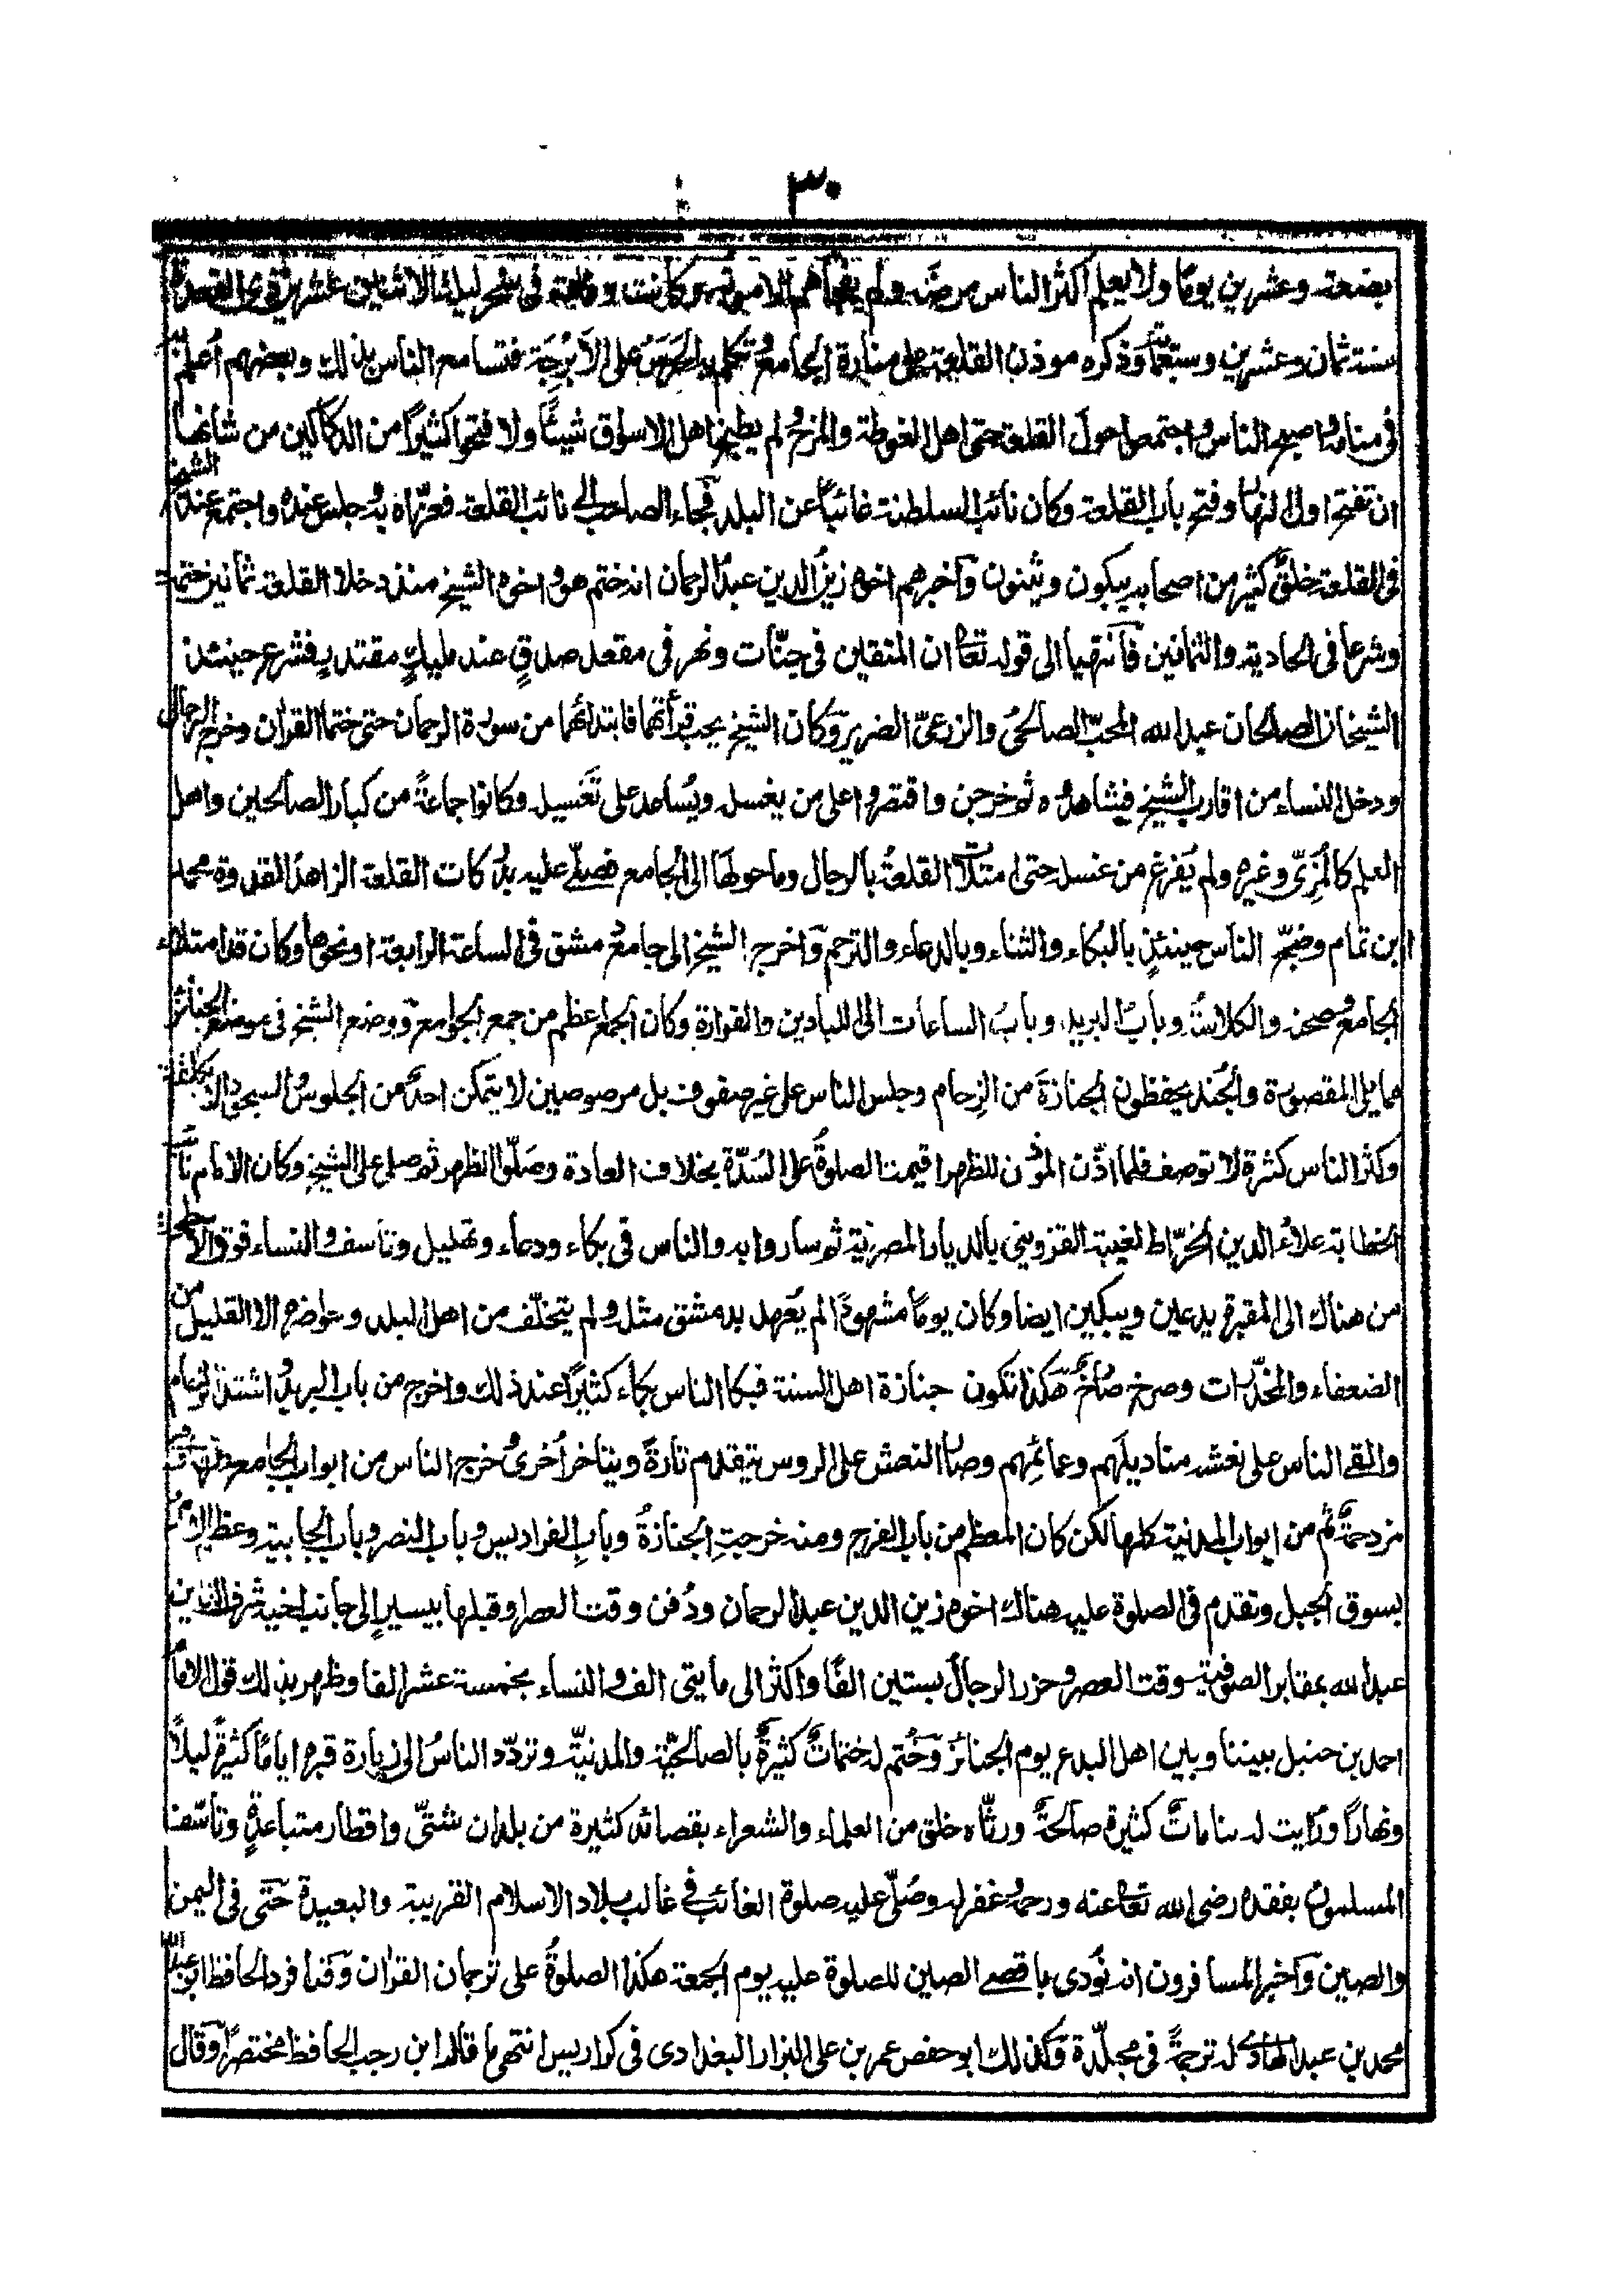 ٣٠
بضعة وعشرين يومًا ولا يعلم اكثر الناس مرضه ولم يفجأهم الا موته وكانت وفاته فى سحر ليلة الاثنين عشرين ذى القعدة
سنة ثمان وعشرين وسبعمائة وذكره موذن القلعة على منارة الجامع وتكلم به الحرس على الابرجة فتسامع الناس بذلك وبعضهم اُعلم
فى منامه واصبح الناس واجتمعوا حول القلعة حتى اهل الغوطة والمرج ولم يطبخ اهل الاسواق شيئًا ولا فتحوا كثيرًا من الدكاكين من شانها
ان تفتح اول النهار وفتح باب القلعة وكان نائب السلطنة غائبًا عن البلد فجاء الصاحب الى نائب القلعة فعزّاه به وجلس عنده واجتمع عند الشيخ
فى القلعة خلقٌ كثير من اصحابه يبكون ويثنون واخبرهم اخوه زين الدين عبد الرحمان انه ختم هو واخوه الشيخ منذ دخلا القلعة ثمانين ختمة
وشرعا فى الحادية والثمانين فانتهيا الى قوله تعالى ان المتقين فى جنّات ونهر فى مقعد صدقٍ عند مليكٍ مقتدرٍ فشرع حينئذ
الشيخان الصالحان عبد الله المحبّ الصالحى والزرعىّ الضرير وكان الشيخ يحب قرأتهما فابتدائهما من سورة الرحمان حتى ختما القرآن وخرج الرجال
ودخل النساء من اقارب الشيخ فشاهدوه ثم خرجن واقتصروا على من يغسله ويُساعد على تغسيله وكانوا جماعةً من كبار الصالحين واهل
العلم كالمزِىّ وغيره ولم يُفرغ من غسله حتى امتلأت القلعةُ بالرجال وما حولها الى الجامع فصلّى عليه بدركات القلعة الزاهد القدوة محمد
ابن تمام وضجّ الناس حينئذٍ بالبكاء والثناء وبالدعاء والترحم واخرج الشيخ الى جامع دمشق فى الساعة الرابعة او نحوها وكان قد امتلاء
الجامع وصحنه والكلاسة وباب البريد وباب الساعات الى اللبادين والفوارة وكان الجمع اعظم من جمع الجوامع ووضع الشيخ فى موضع الجنائز
مما يلى المقصورة والجُند يحفظون الجنازة من الزِحام وجلس الناس على غير صفوف بل مرصوصين لا يتمكن احدٌ من الجلوس والسجود الا بكلفة
وكثر الناس كثرة لا توصف فلما اذّن المؤذن للظهر اقيمت الصلوةُ على السُدّة بخلاف العادة وصَلّوا الظهر ثم صلى على الشيخ وكان الامام نائب
الخطابة علاءُ الدين الخرّاط لغيبة القزوينى بالديار المصرية ثم ساروا به والناس فى بكاء ودعاء وتهليل وتاسف والنساء فوق الاسطحة
من هناك الى المقبرة يدعين ويبكين ايضا وكان يومًا مشهودًا لم يعهد بدمشق مثله ولم يتخلّف من اهل البلد وحواضره الا القليل من
الضعفاء والمخدّرات وصرخ صارخٌ هكذا تكون جنازة اهل السنة فبكا الناس بكاء كثيرًا عند ذلك واخرج من باب البريد واشتد الزحام
والقى الناس على نعشه مناديلَهم وعمائمهم وصار النعش على الروس يتقدم تارةً ويتاخر اُخرىٰ وخرج الناس من ابواب الجامع كلها وهى
مزدحمةٌ ثم من ابواب المدينة كلها لكن كان المعظم من باب الفرج ومنه خرجت الجنازةُ وباب الفراديس وباب النصر وباب الجابية وعظم الامر
بسوق الجبل وتقدم فى الصلوة عليه هناك اخوه زين الدين عبد الرحمان ودُفن وقت العصر او قبلها بيسيرٍ الى جانب اخيه شرف الدين
عبد الله بمقابر الصوفية وقت العصر وحزر الرجال بستين الفًا واكثر الى مايتى الف والنساء بخمسة عشر الفا وظهر بذلك قول الامام
احمد بن حنبل بيننا وبين اهل البدع يوم الجنائز وخُتم له ختماتٌ كثيرةٌ بالصالحيّة والمدنيّة وتردّد الناسُ الى زيارة قبره ايامًا كثيرةً ليلاً
ونهارًا ورُايت له منامات كثيرة صالحة ورثاه خلق من العلماء والشعراء بقصائد كثيرة من بلدان شتّى واقطار متباعدةٍ وتاسّف
المسلمون بفقده رضى الله تعالى عنه ورحمه وغفرله وصُلّى عليه صلوة الغائب فى غالب بلاد الاسلام القريبة والبعيدة حتى فى اليمن
والصين واخبر المسافرون انه نُودى باقصى الصين للصلوة عليه يوم الجمعة هكذا الصلوةُ على ترجمان القرآن وقد افرد الحافظ ابو عبد الله
محمد بن عبد الهادى له ترجمةً فى مجلّدة وكذلك ابو حفص عمر بن على البزار البغدادى فى كواريس انتهى ما قاله ابن رجب الحافظ مختصرًا وقال